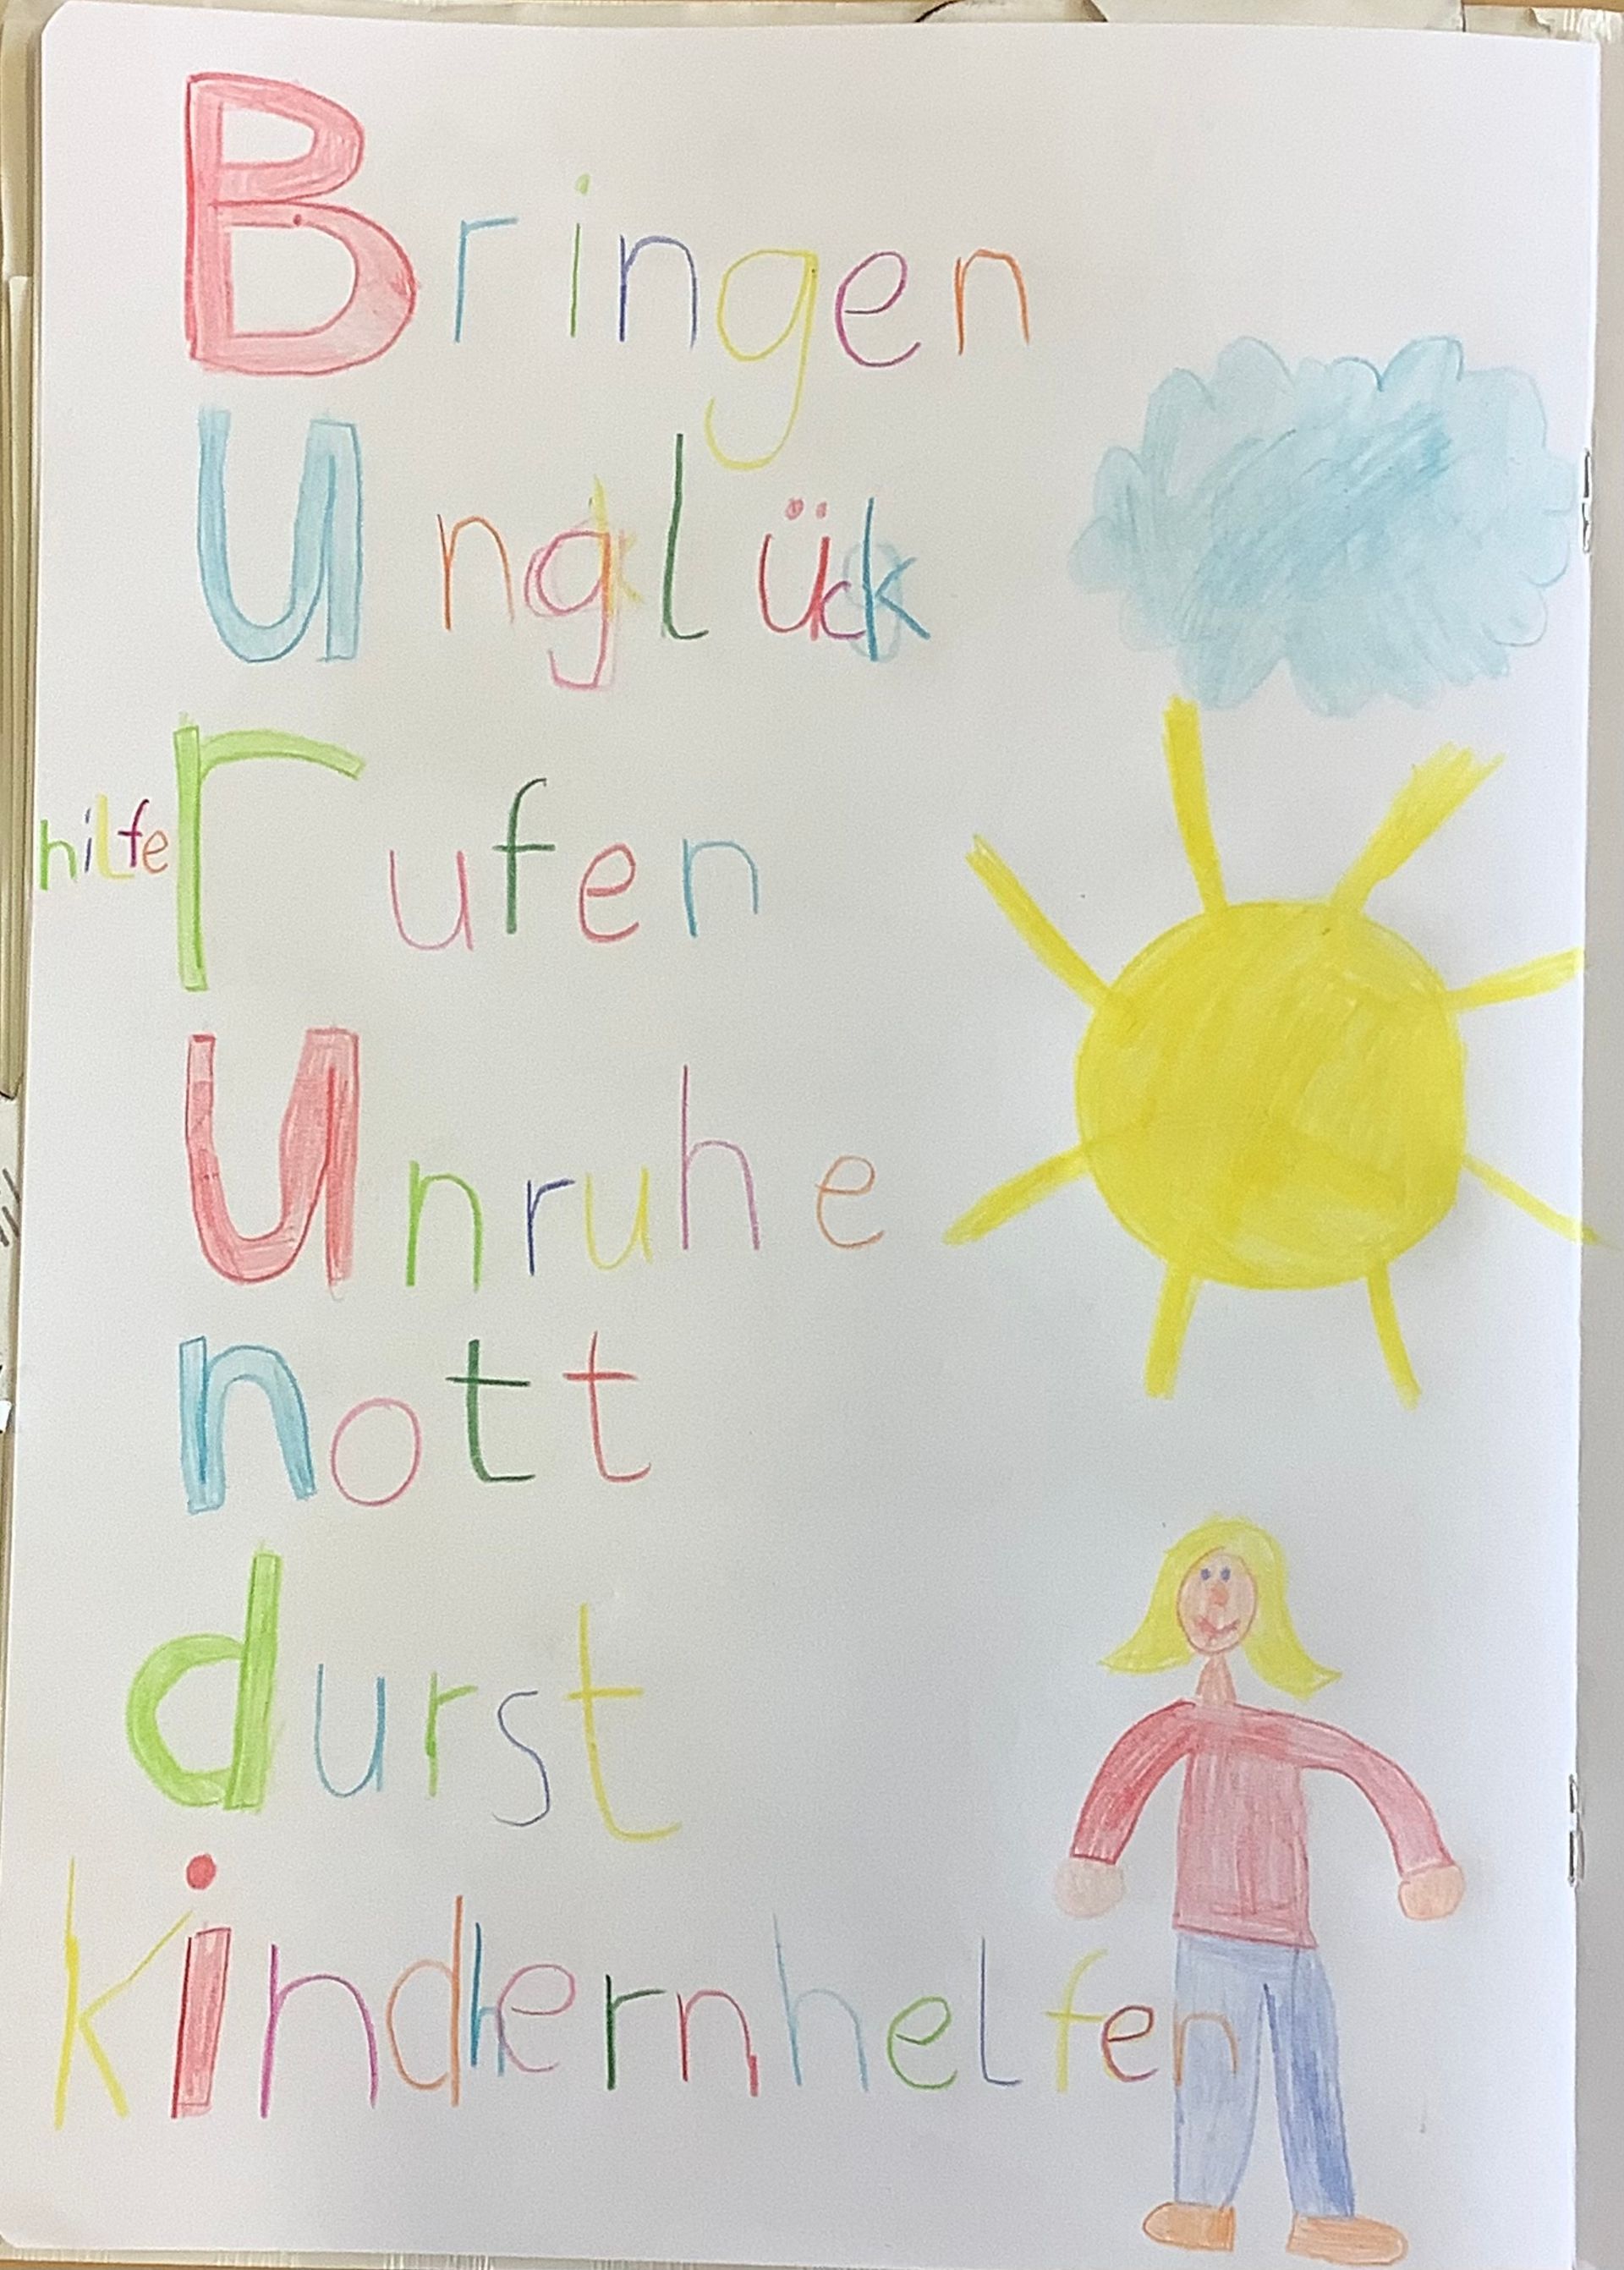 Bringen
unglück
hilfe rufen
unruhe
nott
durst
kindernhelfen